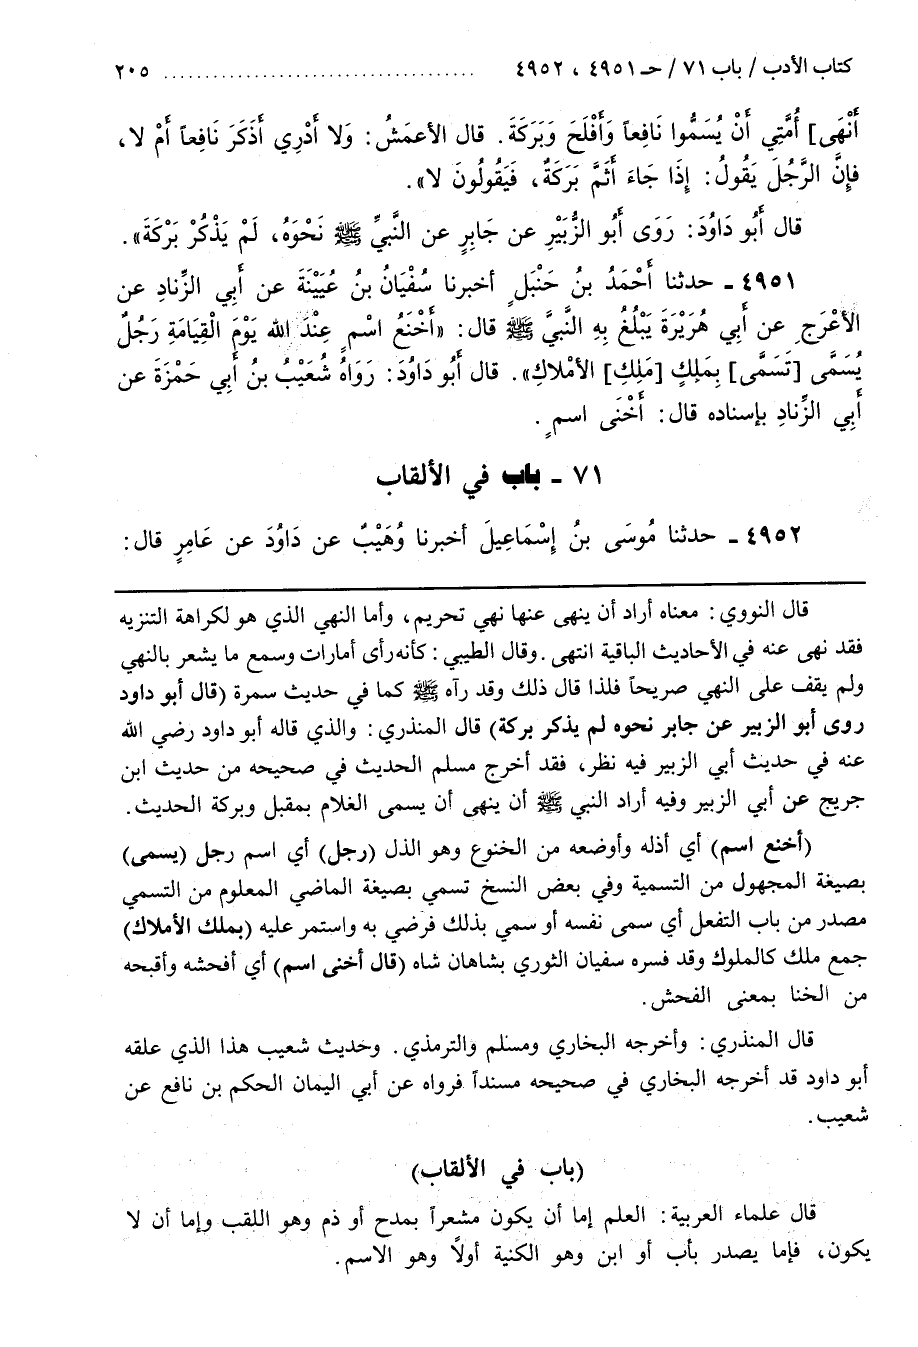 كتاب الأدب / باب ٧١ / حـ ٤٩٥١ ، ٤٩٥٢ ........................................ ٢٠٥
أَنْهَى] أُمَّتِي أَنْ يُسَمُّوا نَافِعاً وَأَفْلَحَ وَبَرَكَةَ. قال الأعمَشُ: وَلا أَدْرِي أَذَكَرَ نَافِعاً أَمْ لا،
فإنَّ الرَّجُلَ يَقُولُ: إذَا جَاءَ أَثَمَّ بَرَكَةٌ، فَيَقُولُونَ لا».
قال أَبُو دَاوُدَ: رَوَى أَبُو الزُّبَيْرِ عن جَابِرٍ عن النَّبيِّ ﷺ نَحْوَهُ، لَمْ يَذْكُرْ بَرْكَةَ».
٤٩٥١ ـ حدثنا أَحْمَدُ بنُ حَنْبَلٍ أخبرنا سُفْيَانُ بنُ عُيَيْنَةَ عن أبي الزِّنادِ عن
الأعْرَجِ عن أبي هُرَيْرَةَ يَبْلُغُ بِهِ النَّبيَّ ﷺ قال: «أَخْنَعُ اسْمٍ عِنْدَ الله يَوْمَ الْقِيَامَةِ رَجُلٌ
يُسَمَّى [تَسَمَّى] بِمَلِكٍ [مَلِكِ] الأمْلاكِ». قال أَبُو دَاوُدَ: رَوَاهُ شُعَيْبُ بنُ أبي حَمْزَةَ عن
أَبِي الزِّنادِ بإسناده قال: أَخْنَى اسمٍ.
٧١ ـ باب في الألقاب
٤٩٥٢ ـ حدثنا مُوسَى بنُ إسْمَاعِيلَ أخبرنا وُهَيْبٌ عن دَاوُدَ عن عَامِرٍ قال:
قال النووي: معناه أراد أن ينهى عنها نهي تحريم، وأما النهي الذي هو لكراهة التنزيه
فقد نهى عنه في الأحاديث الباقية انتهى. وقال الطيبي: كأنه رأى أمارات وسمع ما يشعر بالنهي
ولم يقف على النهي صريحاً فلذا قال ذلك وقد رآه ﷺ كما في حديث سمرة (قال أبو داود
روى أبو الزبير عن جابر نحوه لم يذكر بركة) قال المنذري: والذي قاله أبو داود رضي الله
عنه في حديث أبي الزبير فيه نظر، فقد أخرج مسلم الحديث في صحيحه من حديث ابن
جريج عن أبي الزبير وفيه أراد النبي ﷺ أن ينهى أن يسمى الغلام بمقبل وبركة الحديث.
(أخنع اسم) أي أذله وأوضعه من الخنوع وهو الذل (رجل) أي اسم رجل (يسمى)
بصيغة المجهول من التسمية وفي بعض النسخ تسمي بصيغة الماضي المعلوم من التسمي
مصدر من باب التفعل أي سمى نفسه أو سمي بذلك فرضي به واستمر عليه (بملك الأملاك)
جمع ملك كالملوك وقد فسره سفيان الثوري بشاهان شاه (قال أخنى اسم) أي أفحشه وأقبحه
من الخنا بمعنى الفحش.
قال المنذري: وأخرجه البخاري ومسلم والترمذي. وحديث شعيب هذا الذي علقه
أبو داود قد أخرجه البخاري في صحيحه مسنداً فرواه عن أبي اليمان الحكم بن نافع عن
شعيب.
(باب في الألقاب)
قال علماء العربية: العلم إما أن يكون مشعراً بمدح أو ذم وهو اللقب وإما أن لا
يكون، فإما يصدر بأب أو ابن وهو الكنية أولاً وهو الاسم.